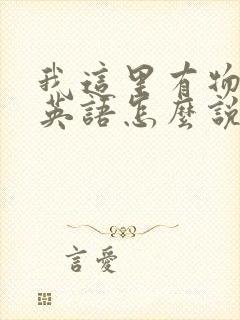 我這里有物
英語怎麼說
言愛